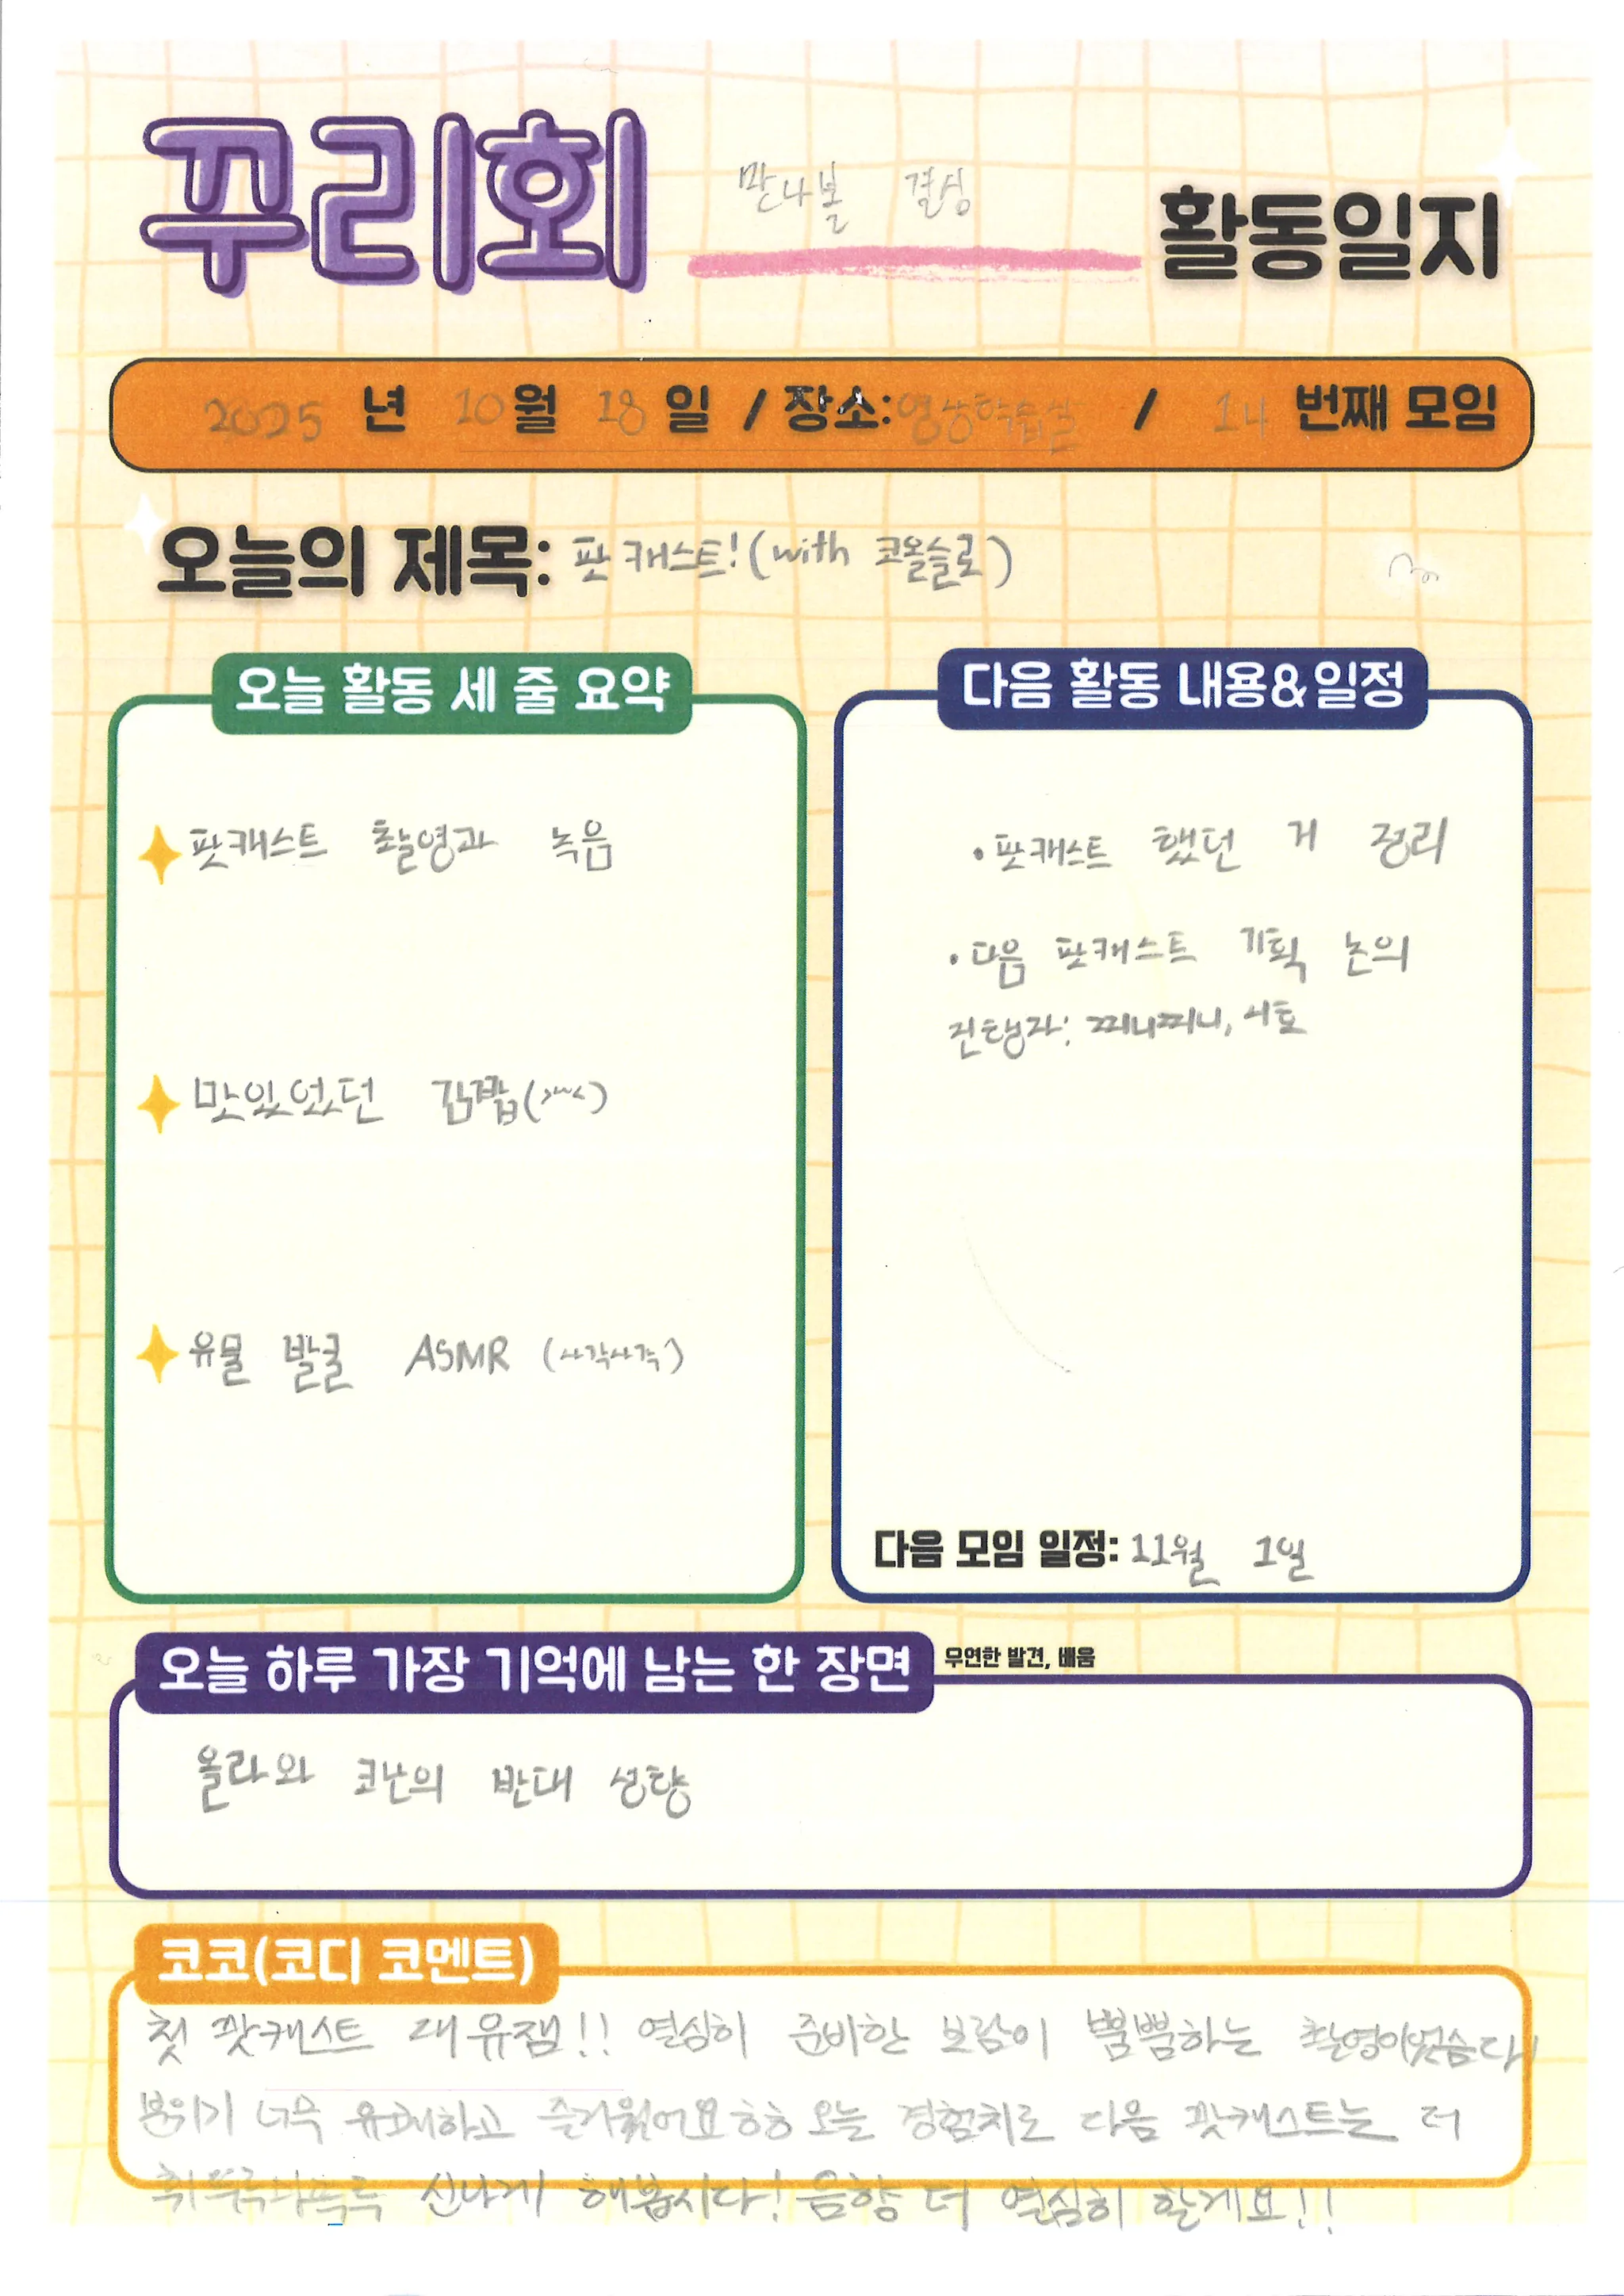 꾸리회 만나볼 결심 활동일지
2025 년 10월 18일 / 장소:영상학습실 / 14 번째 모임
오늘의 제목: 팟캐스트!(with 코올슬로)
오늘 활동 세 줄 요약
팟캐스트 촬영과 녹음
맛있었던 김밥(>~<)
유물 발굴 ASMR (사각사각)
다음 활동 내용&일정
• 팟캐스트 했던 거 정리
• 다음 팟캐스트 기획 논의
진행자: 찌니찌니, 시호
다음 모임 일정: 11월 1일
오늘 하루 가장 기억에 남는 한 장면 우연한 발견, 배움
올라와 코난의 반대 성향
코코(코디 코멘트)
첫 팟캐스트 대유잼!! 열심히 준비한 보람이 뿜뿜하는 촬영이었슴다!
분위기 너무 유쾌하고 즐거웠어요ㅎㅎ 오늘 경험치로 다음 팟캐스트는 더
신나게 해봅시다! 음향 더 열심히 할게요!!